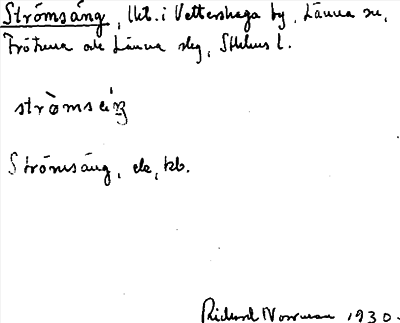 Strömsäng, lht. i Vettershaga by, Länna sn,
Frötuna och Länna slg, Sthlms l.
strò̀msäŋ
Strömsäng, ek, kb.
Rickard Norrman 1930.